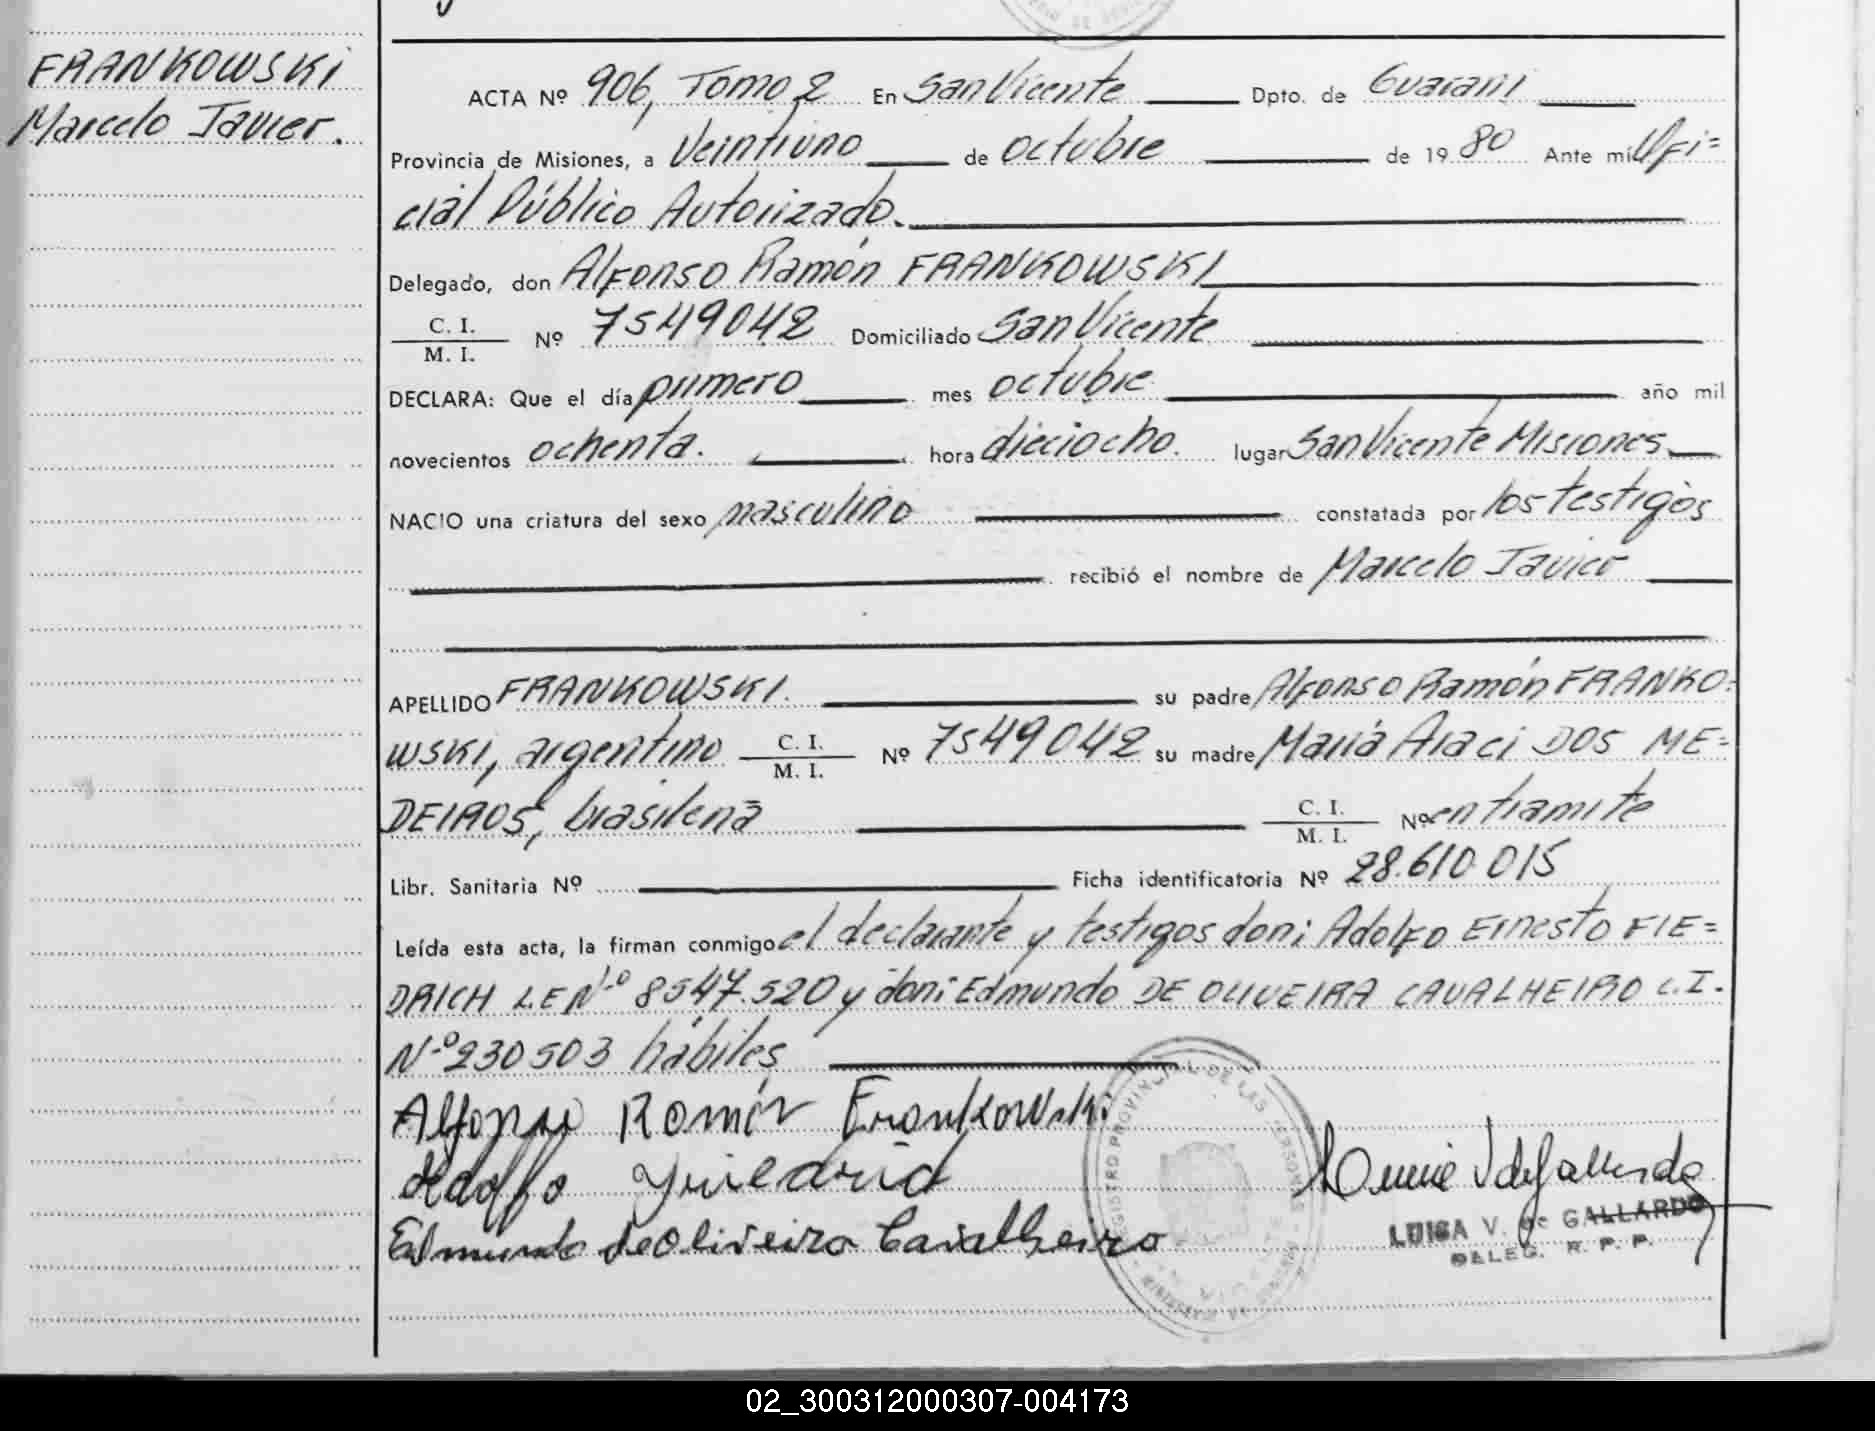 FRANKOWSKI
Marcelo Javier.
ACTA Nº 906, Tomo 2 En San Vicente Dpto. de Guarani
Provincia de Misiones, a Veintiuno de octubre de 19 80 Ante mí Ofi=
cial Público Autorizado.
Delegado, don Alfonso Ramón FRANKOWSKI
C. I.
M. I. Nº 7549042 Domiciliado San Vicente
DECLARA: Que el día primero mes octubre año mil
novecientos ochenta. hora dieciocho. lugar San Vicente Misiones
NACIO una criatura del sexo masculino constatada por los testigos
recibió el nombre de Marcelo Javier
APELLIDO FRANKOWSKI. su padre Alfonso Ramón FRANKO=
WSKI, argentino C. I. M. I. Nº 7549042 su madre María Araci DOS ME=
DEIROS, brasileña C. I. M. I. Nº en tramite
Libr. Sanitaria Nº Ficha identificatoria Nº 28.610.015
Leída esta acta, la firman conmigo el declarante y testigos don: Adolfo Ernesto FIE=
DRICH LE Nº 8547.520 y don: Edmundo DE OLIVEIRA CAVALHEIRO C.I.
Nº 230503 hábiles
Alfonso Ramón Frankowski
Adolfo
Edmundo de Oliveira Cavalheiro
REGISTRO PROVINCIAL DE LAS PERSONAS
LUISA V. de GALLARDO
DELEG. R. P. P.
02_300312000307-004173